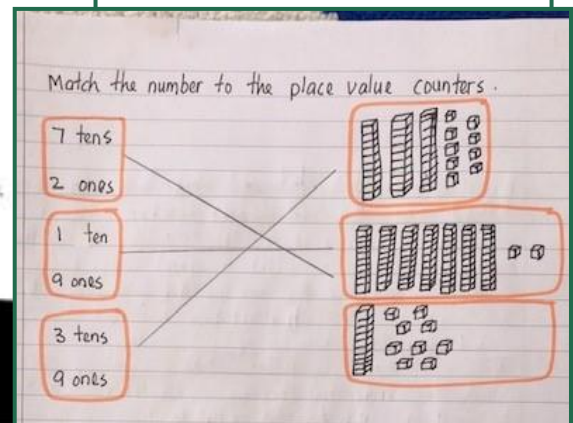 Match the number to the place value counters.
7 tens
2 ones
1 ten
9 ones
3 tens
9 ones